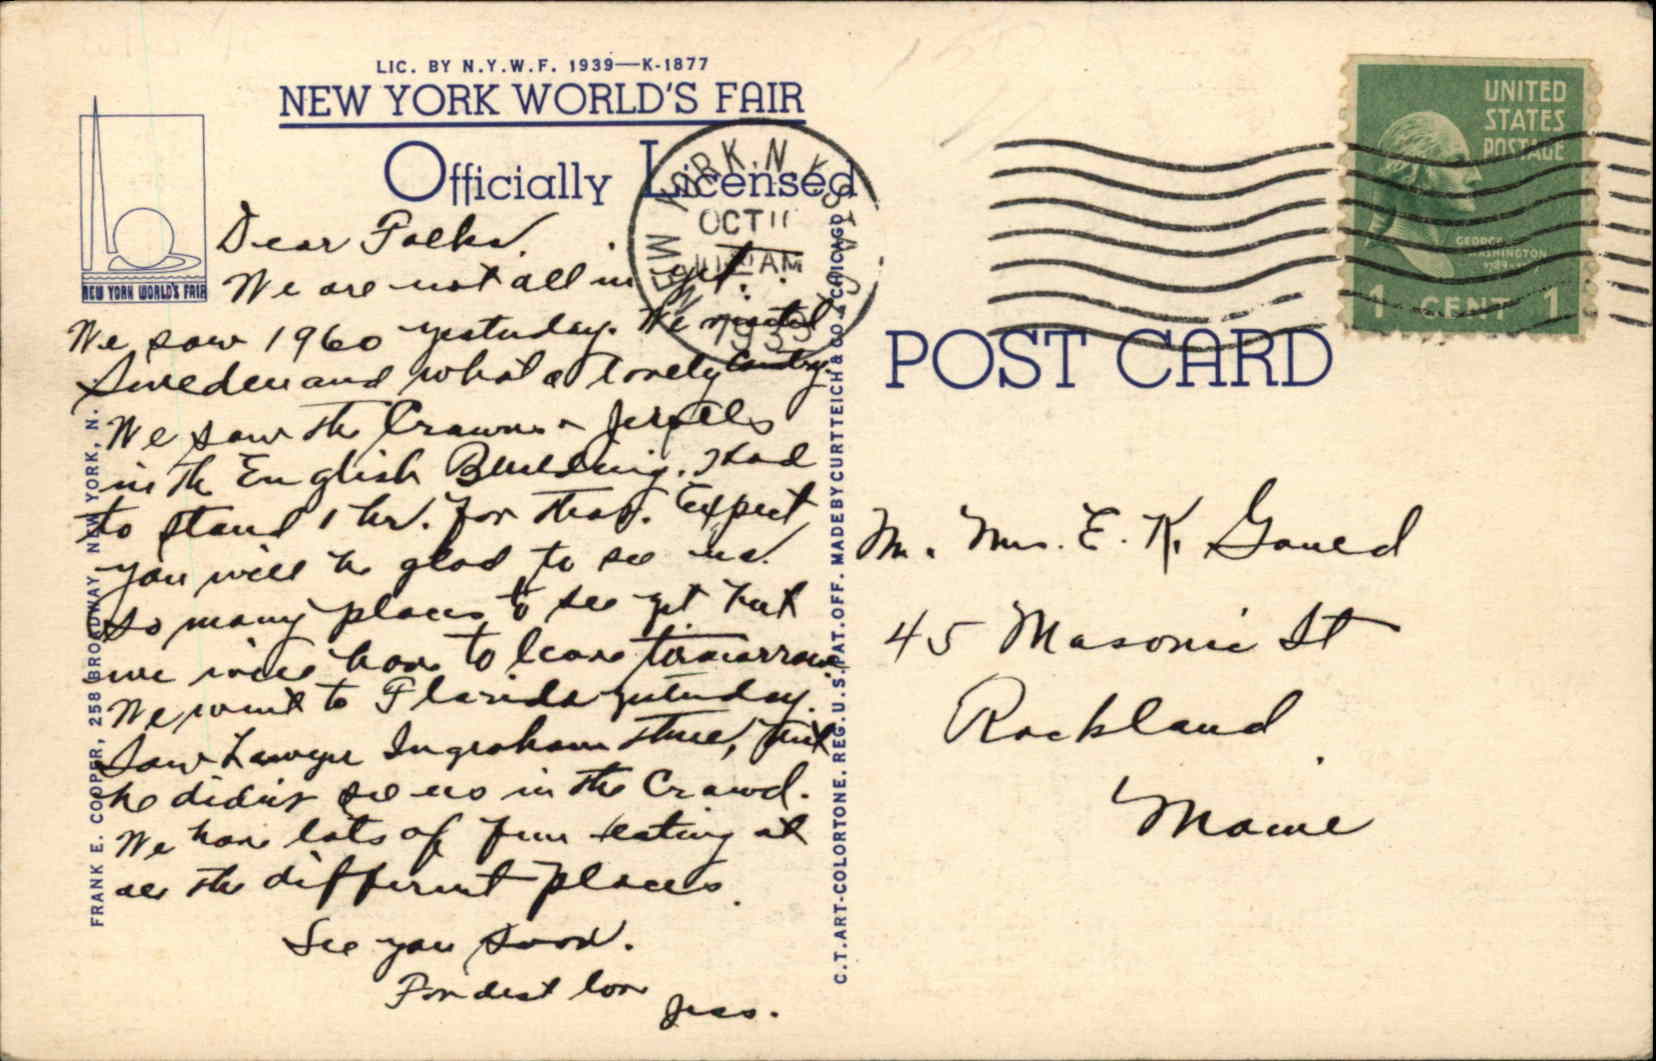 LIC. BY N.Y.W.F. 1939—K-1877
NEW YORK WORLD'S FAIR
Officially Licensed
NEW YORK WORLD'S FAIR
NEW YORK, N.Y. STA.
OCT 11
AM
1939
UNITED
STATES
POSTAGE
GEORGE
WASHINGTON
1 CENT 1
POST CARD
Dear Folks.
We are not all in yet.
We saw 1960 yesterday. We visited
Sweden and what a lovely Country.
We saw the Crowns & Jewells
in the English Building. I had
to stand 1 hr. for that. Expect
you will be glad to see us.
So many places to see yet but
we will have to leave tomorrow.
We went to Florida yesterday.
Saw Lawyer Ingraham there, but
he didn't see us in the Crowd.
We have lots of fun eating at
all the different places.
See you soon.
Fondest love
Jess.
M. Mrs. E. K. Gould
45 Masonic St
Rockland
Maine
FRANK E. COOPER, 258 BROADWAY, NEW YORK, N.
C.T. ART-COLORTONE. REG. U.S. PAT. OFF. MADE BY CURT TEICH & CO., CHICAGO